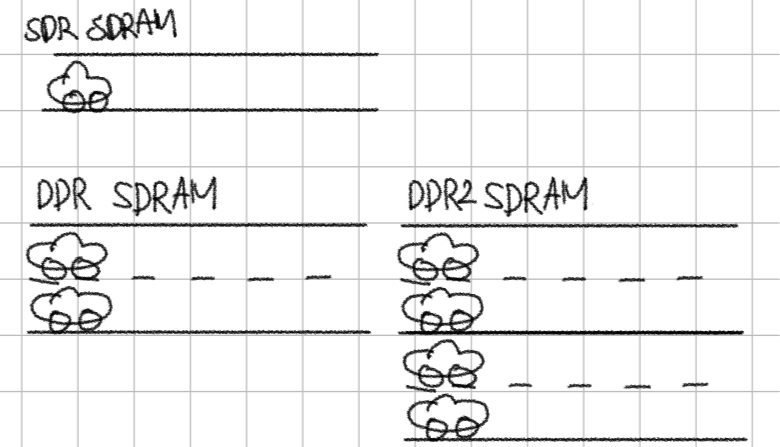 SDR SDRAM
DDR SDRAM
DDR2 SDRAM